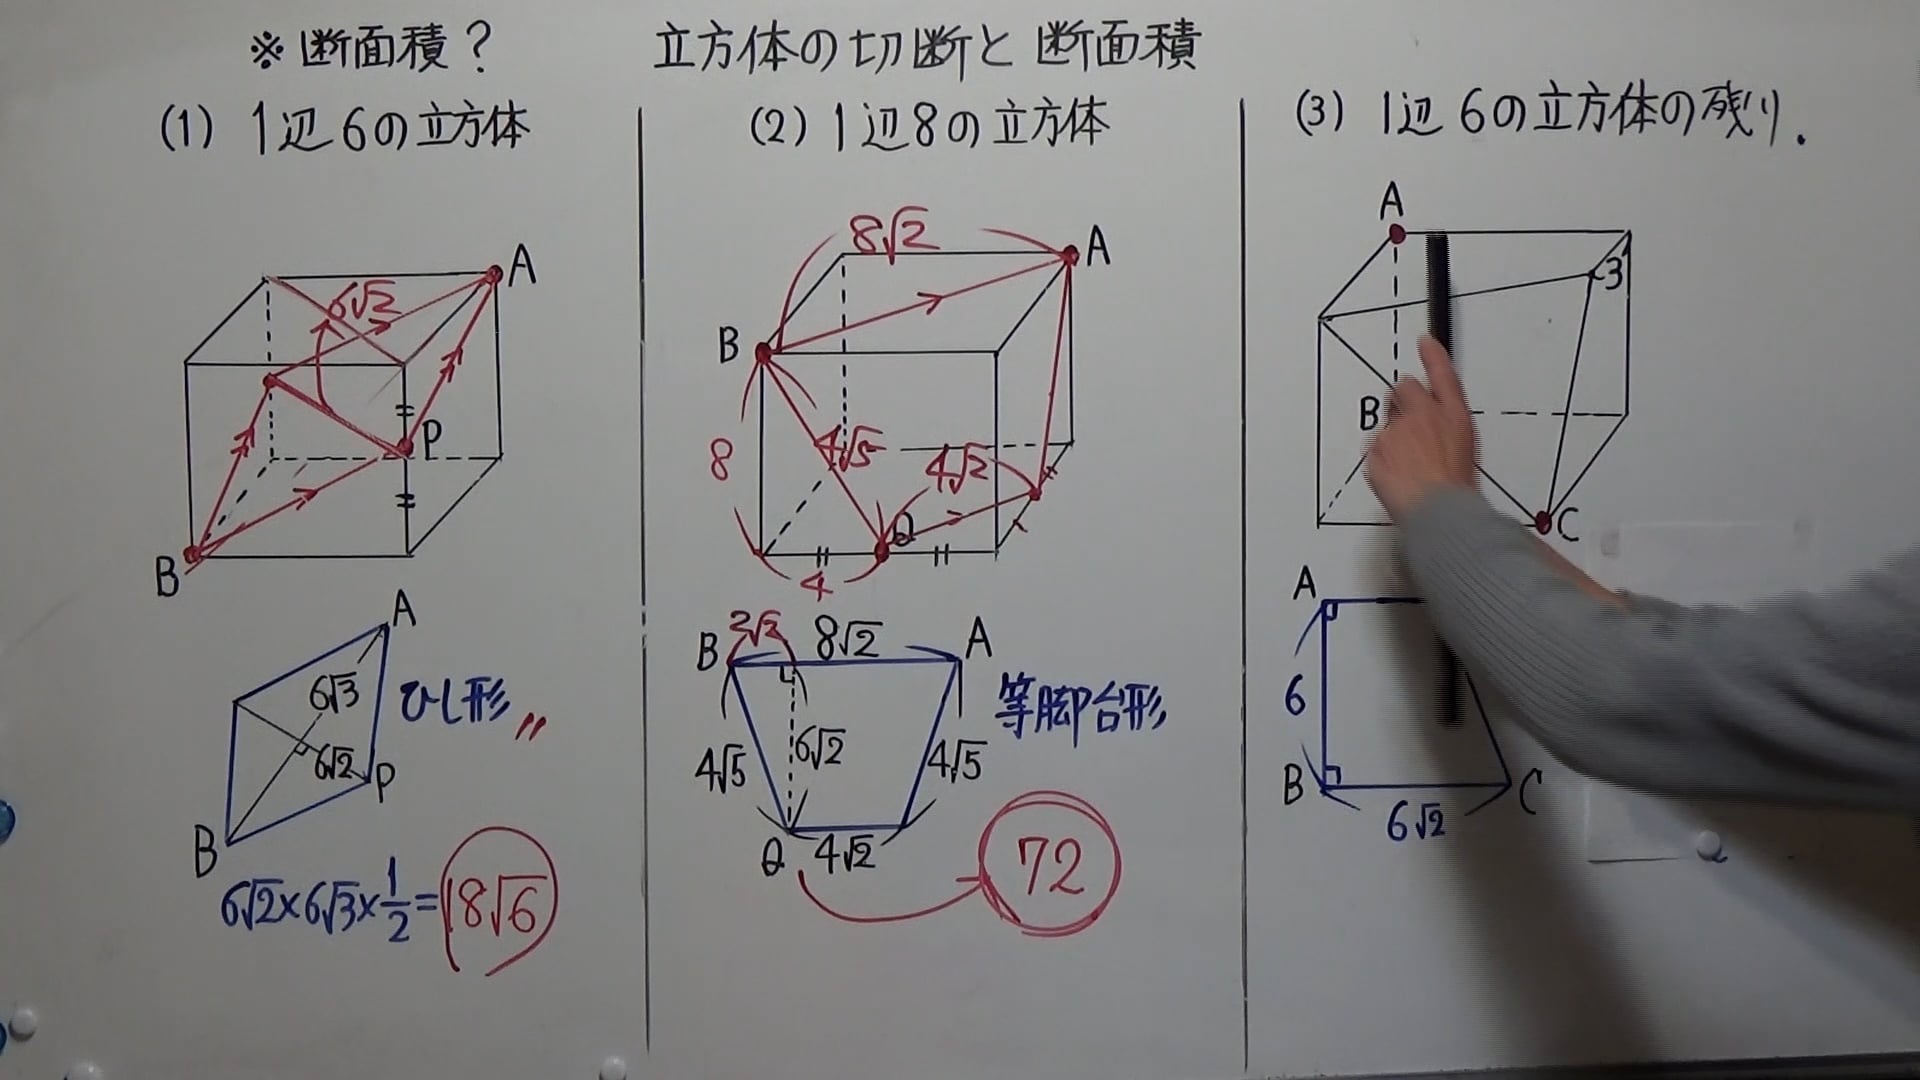 ※ 断面積?
立方体の切断と断面積
(1) 1辺6の立方体
A
6√2
P
B
A
6√3
6√2
P
B
ひし形〃
6√2×6√3×1/2=18√6
(2) 1辺8の立方体
8√2
A
B
8
4√5
4√2
Q
4
2√2
8√2
B
A
4√5
6√2
4√5
Q
4√2
等脚台形
72
(3) 1辺6の立方体の残り.
A
3
B
C
A
6
B
C
6√2